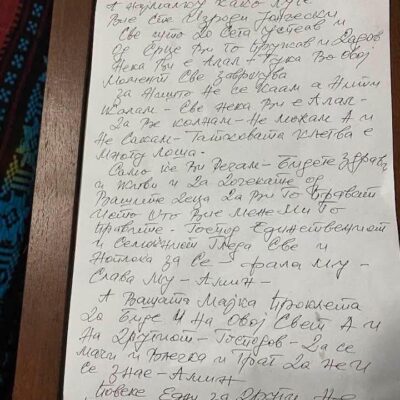 А најмалку како луѓе
Вие сте изроди
Све што до сега успеав и
од срце ви го пружав и дадов
Нека ви е алал - тука во овој
момент све завршува
за ништо не се каам а ниту
жалам - све нека ви е алал -
Да ве колнам - не можам а и
не сакам - татковата клетва е
многу лоша.
Само ќе ви речам - бидете здрави
и живи и да дочекате од
вашите деца да ви го прават
истото што вие мене ми го
правите - Господ единствениот
и семоќниот гледа све и
наплака за се - фала му -
слава му - амин -
А вашата мајка проклета
да биде и на овој свет а и
на другиот - Господов - да се
мачи и влечка и гроб да не ѝ
се знае - амин
повеќе